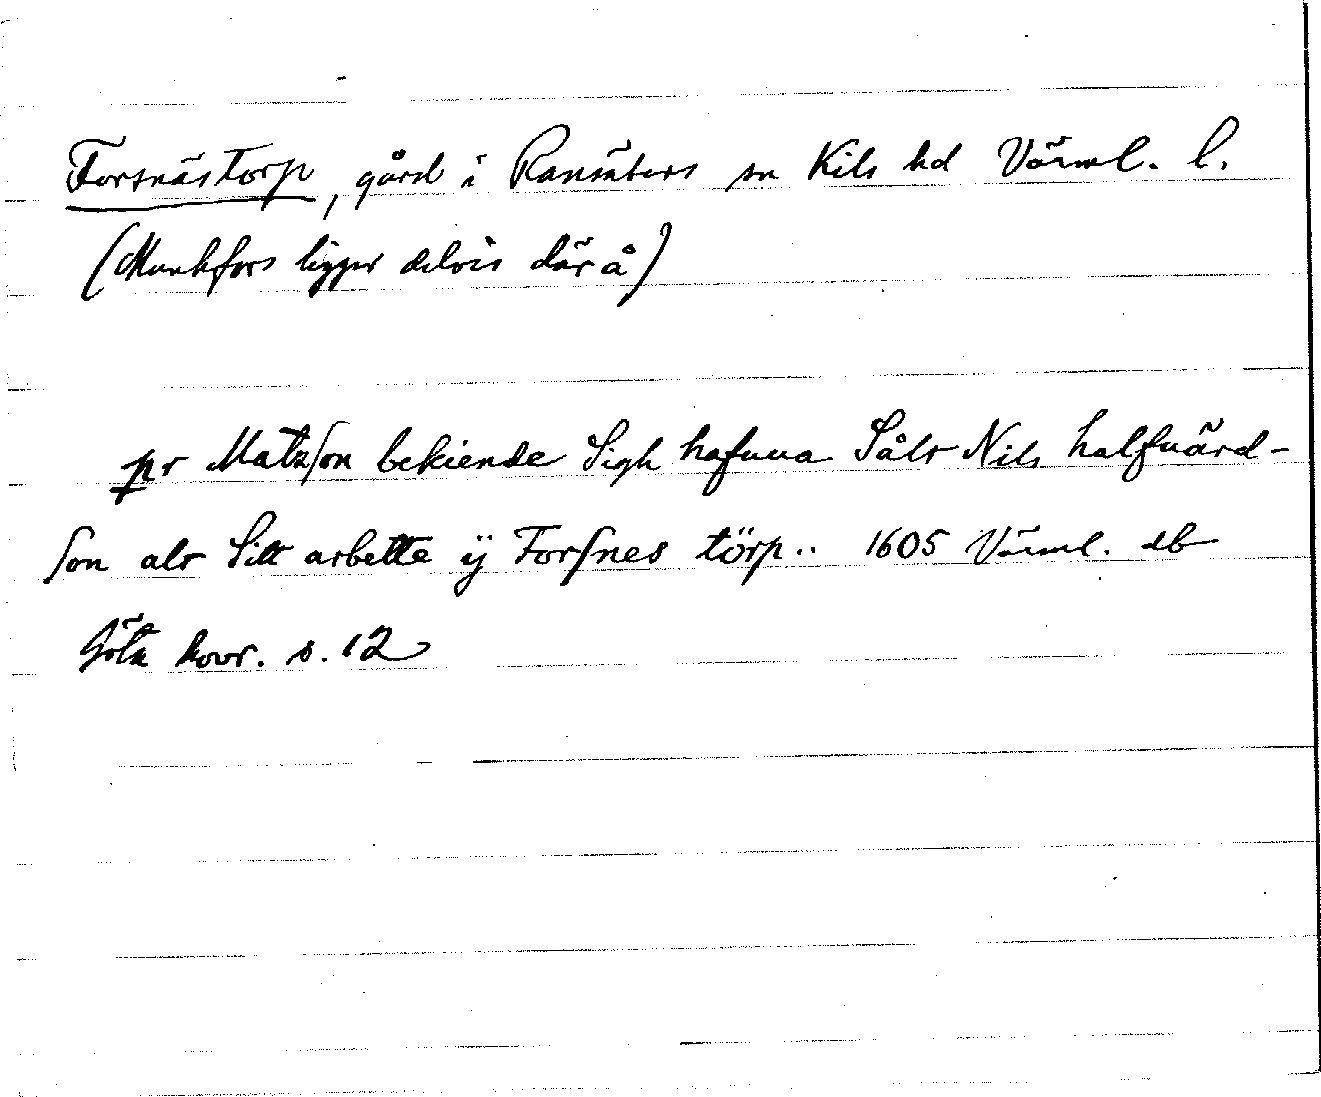 Forsnästorp, gård i Ransäters sn Kils hd Värml. l.
(Munkfors ligger delvis därå)
pr Matzſon bekiende Sigh hafuua Sålt Nils halfuärd-
ſon alt Sitt arbette ÿ Forſnes törp.. 1605 Värml. db
Göta hovr. s. 12